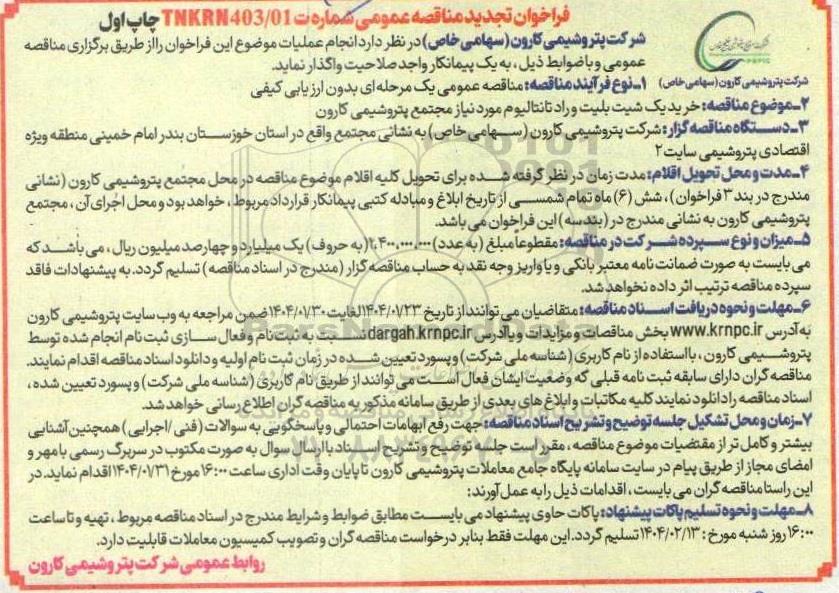 فراخوان تجدید مناقصه عمومی شماره ت TNKRN403/01 چاپ اول
شرکت پتروشیمی کارون (سهامی خاص) در نظر دارد انجام عملیات موضوع این فراخوان را از طریق برگزاری مناقصه
عمومی و با ضوابط ذیل، به یک پیمانکار واجد صلاحیت واگذار نماید.
شرکت پتروشیمی کارون (سهامی خاص)
۱ـ نوع فرآیند مناقصه: مناقصه عمومی یک مرحله‌ای بدون ارزیابی کیفی
۲ـ موضوع مناقصه: خرید یک شیت بلیت و راد تانتالیوم مورد نیاز مجتمع پتروشیمی کارون
۳ـ دستگاه مناقصه گزار: شرکت پتروشیمی کارون (سهامی خاص) به نشانی مجتمع واقع در استان خوزستان بندر امام خمینی منطقه ویژه
اقتصادی پتروشیمی سایت ۲
۴ـ مدت و محل تحویل اقلام: مدت زمان در نظر گرفته شده برای تحویل کلیه اقلام موضوع مناقصه در محل مجتمع پتروشیمی کارون (نشانی
مندرج در بند ۳ فراخوان)، شش (۶) ماه تمام شمسی از تاریخ ابلاغ و مبادله کتبی پیمانکار قرارداد مربوط، خواهد بود و محل اجرای آن، مجتمع
پتروشیمی کارون به نشانی مندرج در (بند سه) این فراخوان می باشد.
۵ـ میزان و نوع سپرده شرکت در مناقصه: مقطوعا مبلغ (به عدد) ۱،۴۰۰،۰۰۰،۰۰۰ (به حروف) یک میلیارد و چهارصد میلیون ریال، می باشد که
می بایست به صورت ضمانت نامه معتبر بانکی و یا واریز وجه نقد به حساب مناقصه گزار (مندرج در اسناد مناقصه) تسلیم گردد. به پیشنهادات فاقد
سپرده مناقصه ترتیب اثر داده نخواهد شد.
۶ـ مهلت و نحوه دریافت اسناد مناقصه: متقاضیان می توانند از تاریخ ۱۴۰۴/۰۱/۲۳ لغایت ۱۴۰۴/۰۱/۳۰ ضمن مراجعه به وب سایت پتروشیمی کارون
به آدرس www.krnpc.ir بخش مناقصات و مزایدات و یا آدرس dargah.krnpc.ir نسبت به ثبت نام و فعال سازی ثبت نام انجام شده توسط
پتروشیمی کارون، با استفاده از نام کاربری (شناسه ملی شرکت) و پسورد تعیین شده در زمان ثبت نام اولیه و دانلود اسناد مناقصه اقدام نمایند.
مناقصه گران دارای سابقه ثبت نامه قبلی که وضعیت ایشان فعال است می توانند از طریق نام کاربری (شناسه ملی شرکت) و پسورد تعیین شده،
اسناد مناقصه را دانلود نمایند کلیه مکاتبات و ابلاغ های بعدی از طریق سامانه مذکور به مناقصه گران اطلاع رسانی خواهد شد.
۷ـ زمان و محل تشکیل جلسه توضیح و تشریح اسناد مناقصه: جهت رفع ابهامات احتمالی و پاسخگویی به سوالات (فنی/اجرایی) همچنین آشنایی
بیشتر و کامل تر از مقتضیات موضوع مناقصه، مقرر است جلسه توضیح و تشریح اسناد با ارسال سوال به صورت مکتوب در سربرگ رسمی با مهر و
امضای مجاز از طریق پیام در سایت سامانه پایگاه جامع معاملات پتروشیمی کارون تا پایان وقت اداری ساعت ۱۶:۰۰ مورخ ۱۴۰۴/۰۱/۳۱ اقدام نماید. در
این راستا مناقصه گران می بایست، اقدامات ذیل را به عمل آورند:
۸ـ مهلت و نحوه تسلیم پاکات پیشنهاد: پاکات حاوی پیشنهاد می بایست مطابق ضوابط و شرایط مندرج در اسناد مناقصه مربوط، تهیه و تا ساعت
۱۶:۰۰ روز شنبه مورخ: ۱۴۰۴/۰۲/۱۳ تسلیم گردد. این مهلت فقط بنابر درخواست مناقصه گران و تصویب کمیسیون معاملات قابلیت دارد.
روابط عمومی شرکت پتروشیمی کارون